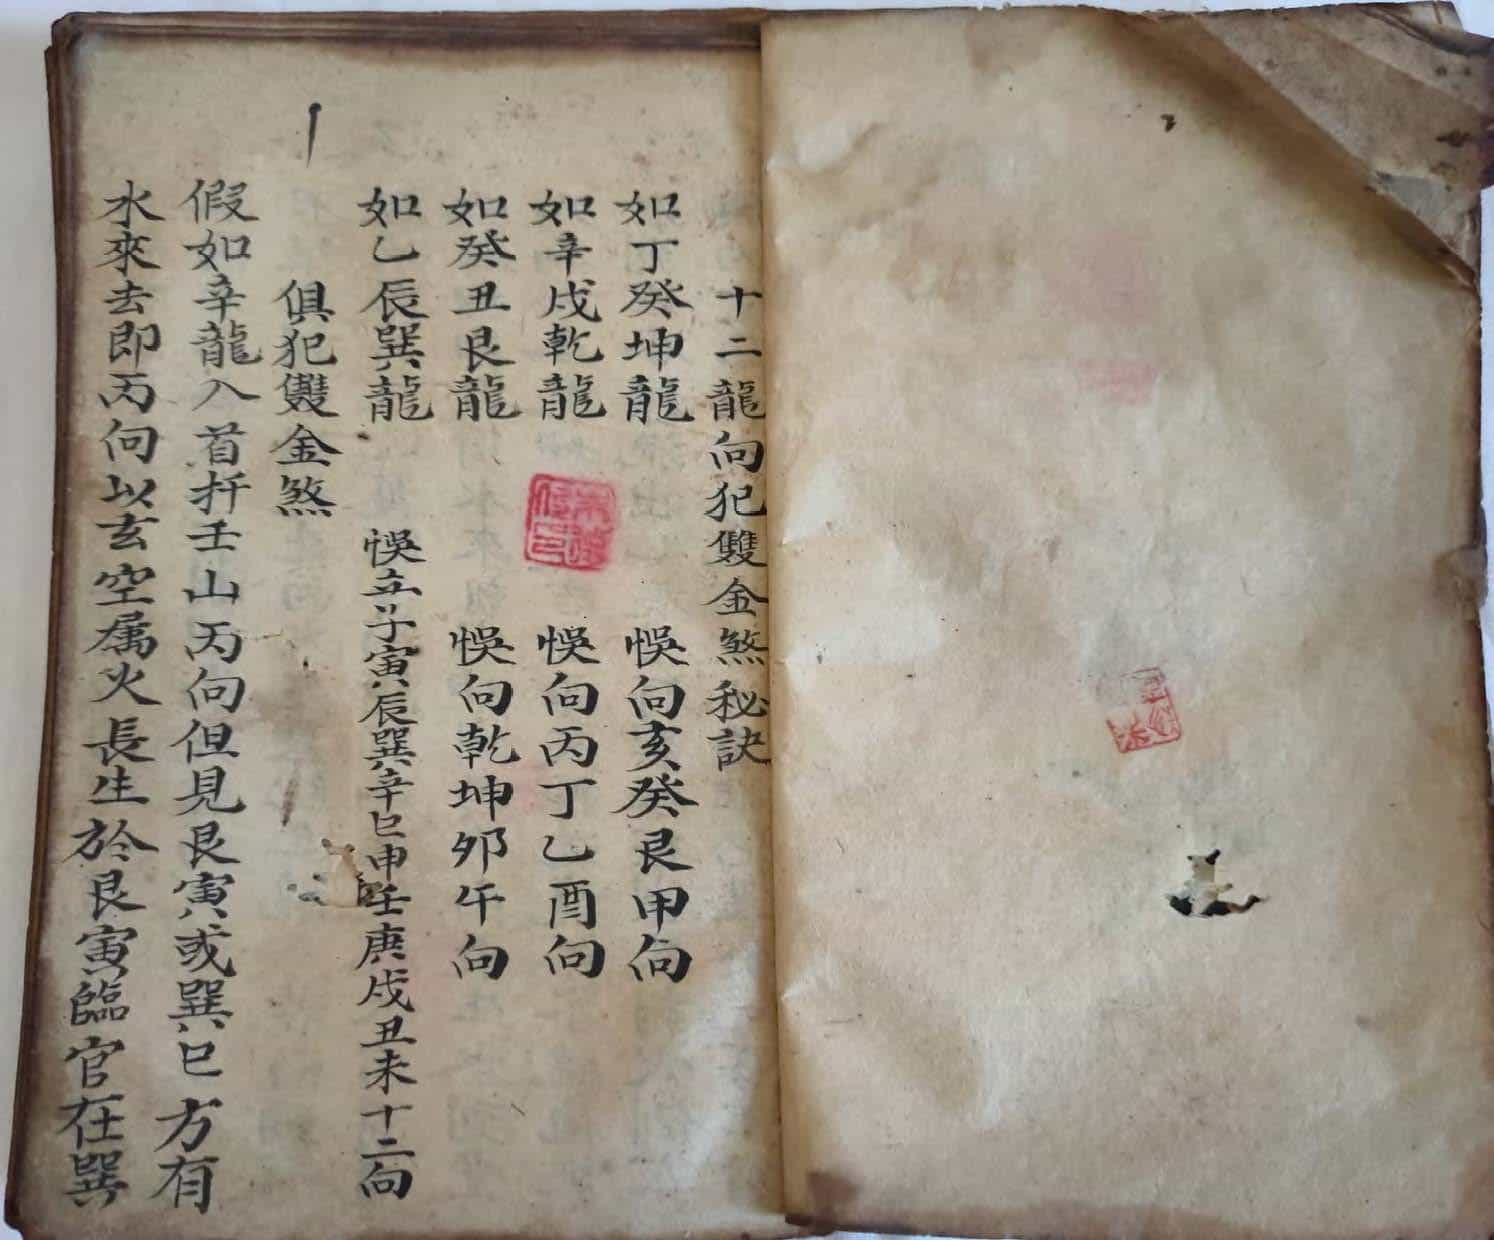 十二龍向犯雙金煞秘訣
如丁癸坤龍 悞向亥癸艮甲向
如辛戌乾龍 悞向丙丁乙酉向
如癸丑艮龍 悞向乾坤夘午向
如乙辰巽龍 悞立子寅辰巽辛巳申壬庚戌丑未十二向
俱犯雙金煞
假如辛龍入首扦壬山丙向但見艮寅或巽巳方有
水來去即丙向以玄空属火長生於艮寅臨官在巽